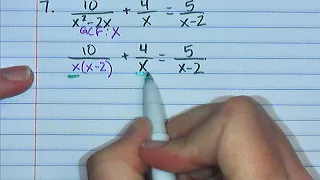 7. 10/(x²-2x) + 4/x = 5/(x-2)
GCF: X
10/(x(x-2)) + 4/x = 5/(x-2)